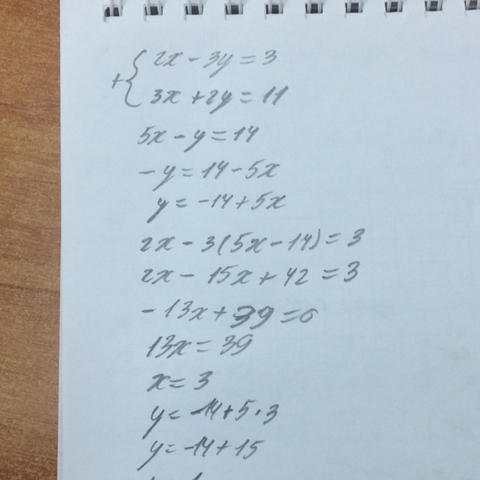 +{ 2x - 3y = 3
3x + 2y = 11
5x - y = 14
-y = 14 - 5x
y = -14 + 5x
2x - 3(5x - 14) = 3
2x - 15x + 42 = 3
-13x + 39 = 0
13x = 39
x = 3
y = -14 + 5·3
y = -14 + 15